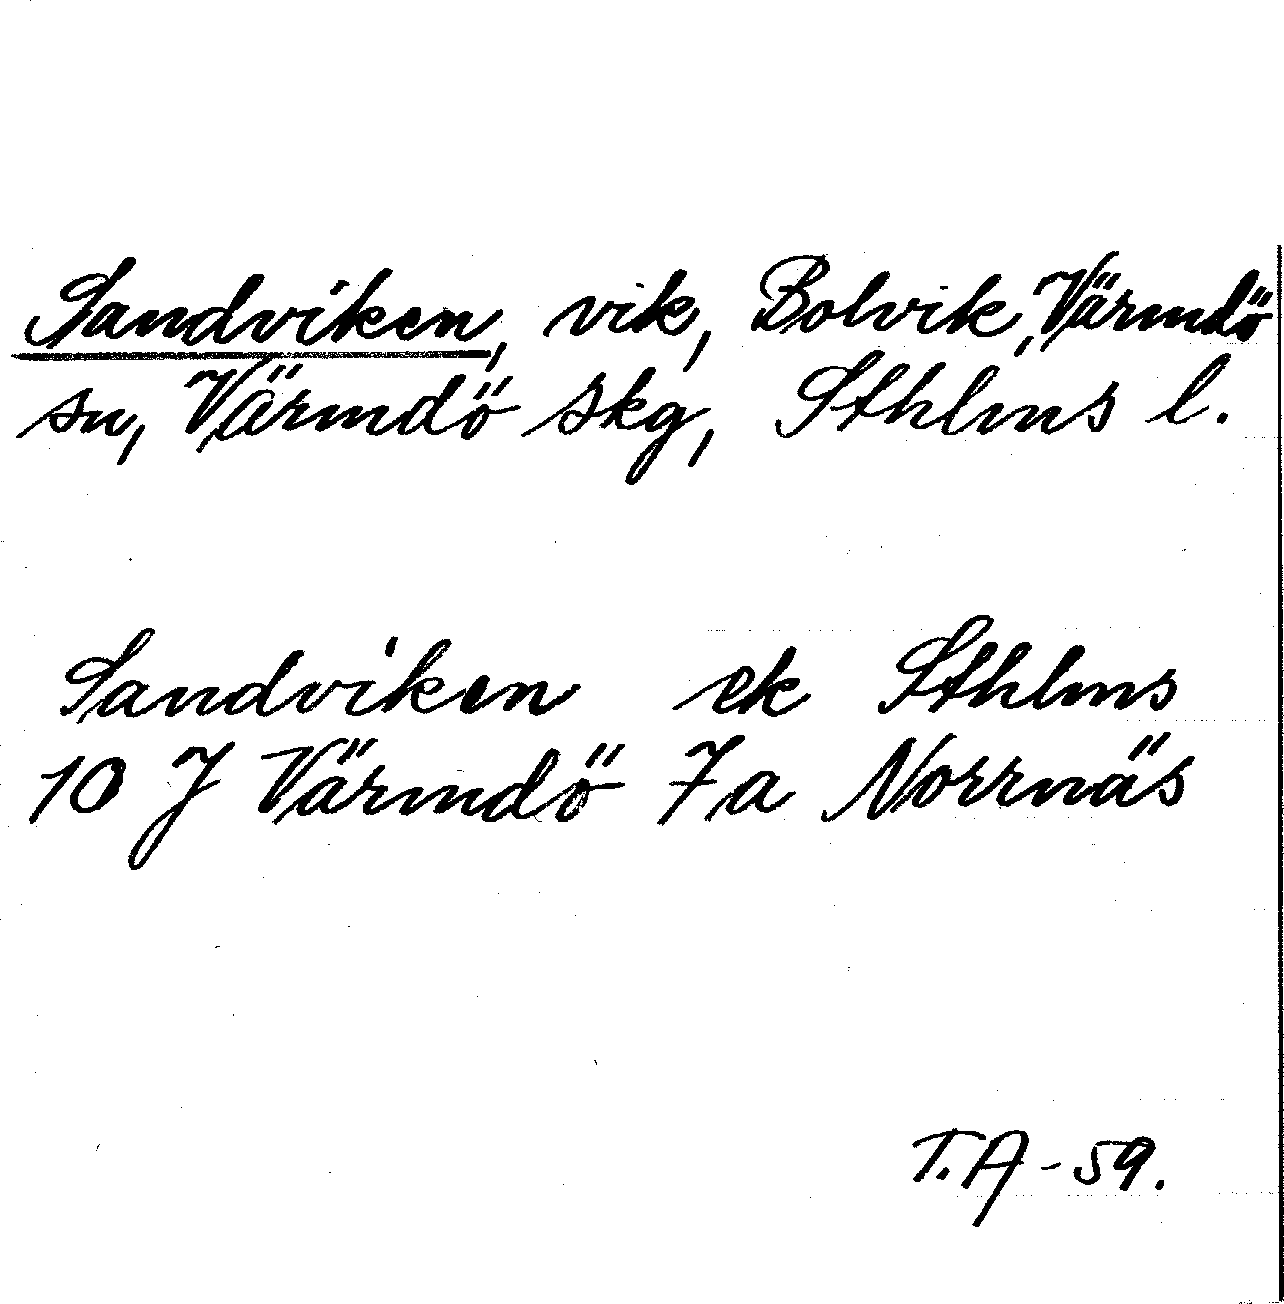 Sandviken, vik, Bolvik, Värmdö
sn, Värmdö skg, Sthlms l.
Sandviken ek Sthlms
10 J Värmdö 7a Norrnäs
T.A-59.